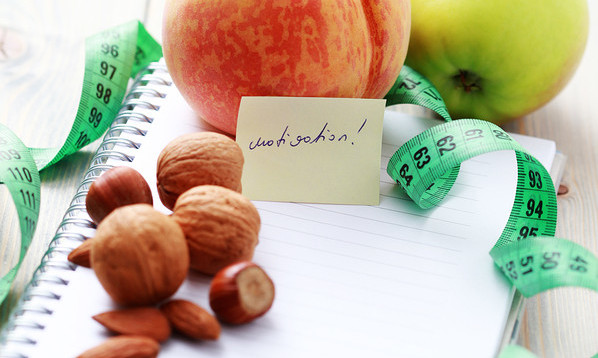 motivation!
96
97
98
99
110
111
62
63
64
93
94
95
51 50 49